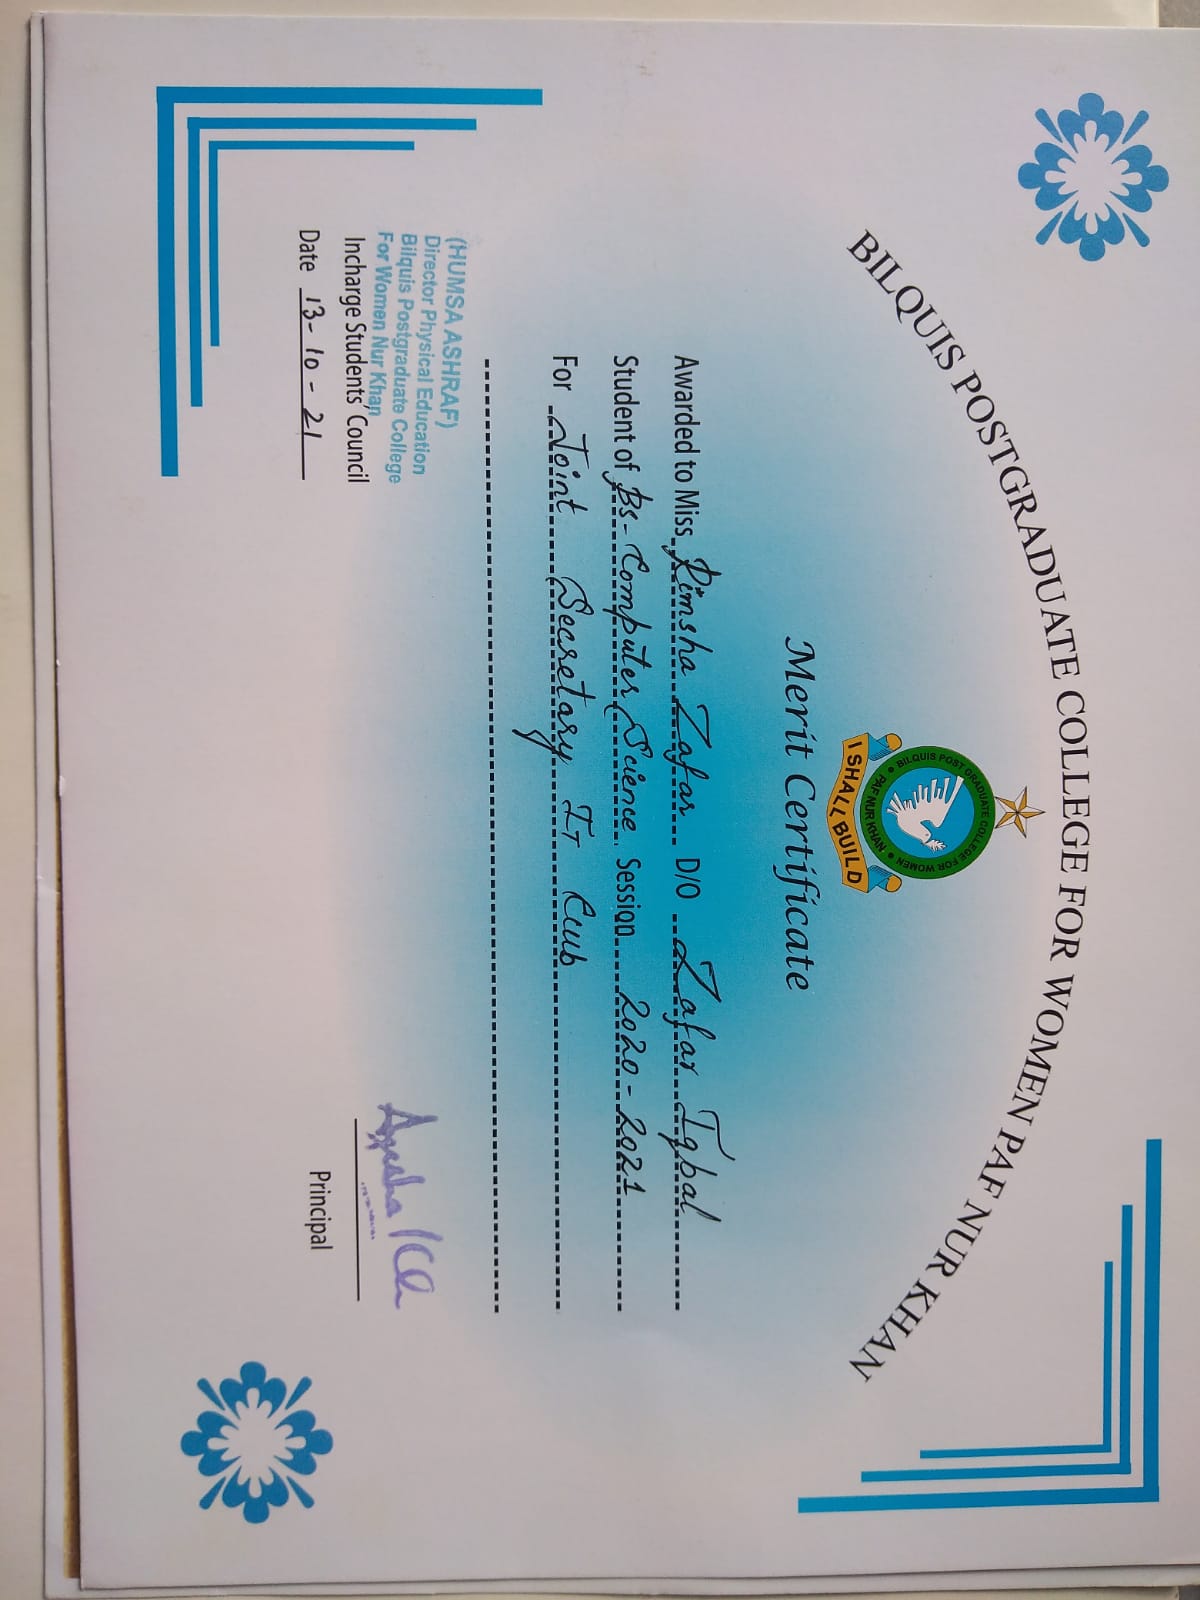 BILQUIS POSTGRADUATE COLLEGE FOR WOMEN PAF NUR KHAN
BILQUIS POST GRADUATE COLLEGE FOR WOMEN
PAF NUR KHAN
I SHALL BUILD
Merit Certificate
Awarded to Miss Rimsha Zafar D/O Zafar Iqbal
Student of Bs-Computer Science Session 2020-2021
For Joint Secretary IT Club
(HUMSA ASHRAF)
Director Physical Education
Bilquis Postgraduate College
For Women Nur Khan
Incharge Students' Council
Date 13-10-21
Principal